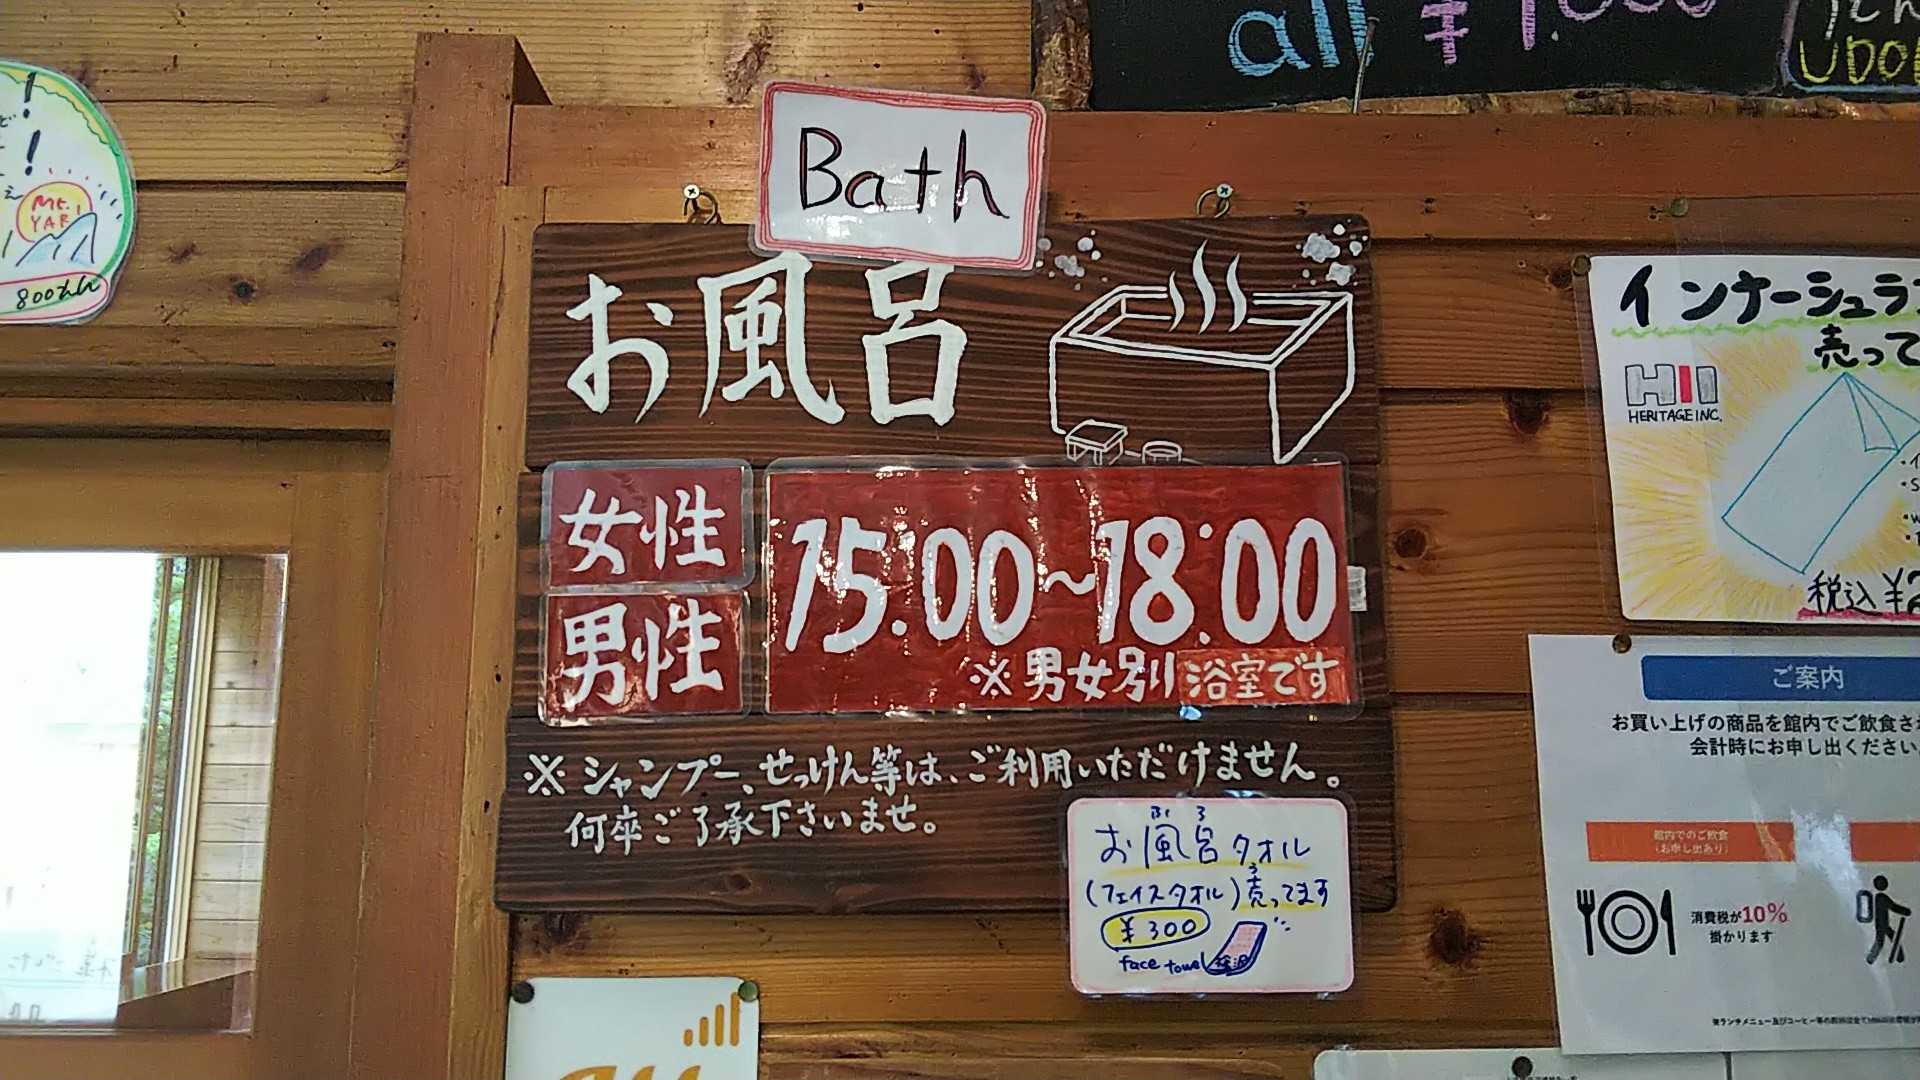 all ¥1,000
UDO
!
!
Mt.
YARI
800えん
Bath
お風呂
女性
男性
15:00~18:00
※男女別浴室です
※シャンプー、せっけん等は、ご利用いただけません。
何卒ご了承下さいませ。
ふろ
お風呂タオル
(フェイスタオル)売ってます
¥300
face towel
インナーシュラフ
売って
HERITAGE INC.
税込¥2
ご案内
お買い上げの商品を館内でご飲食され
会計時にお申し出ください
館内でのご飲食
(お申し出あり)
消費税が10%
掛かります